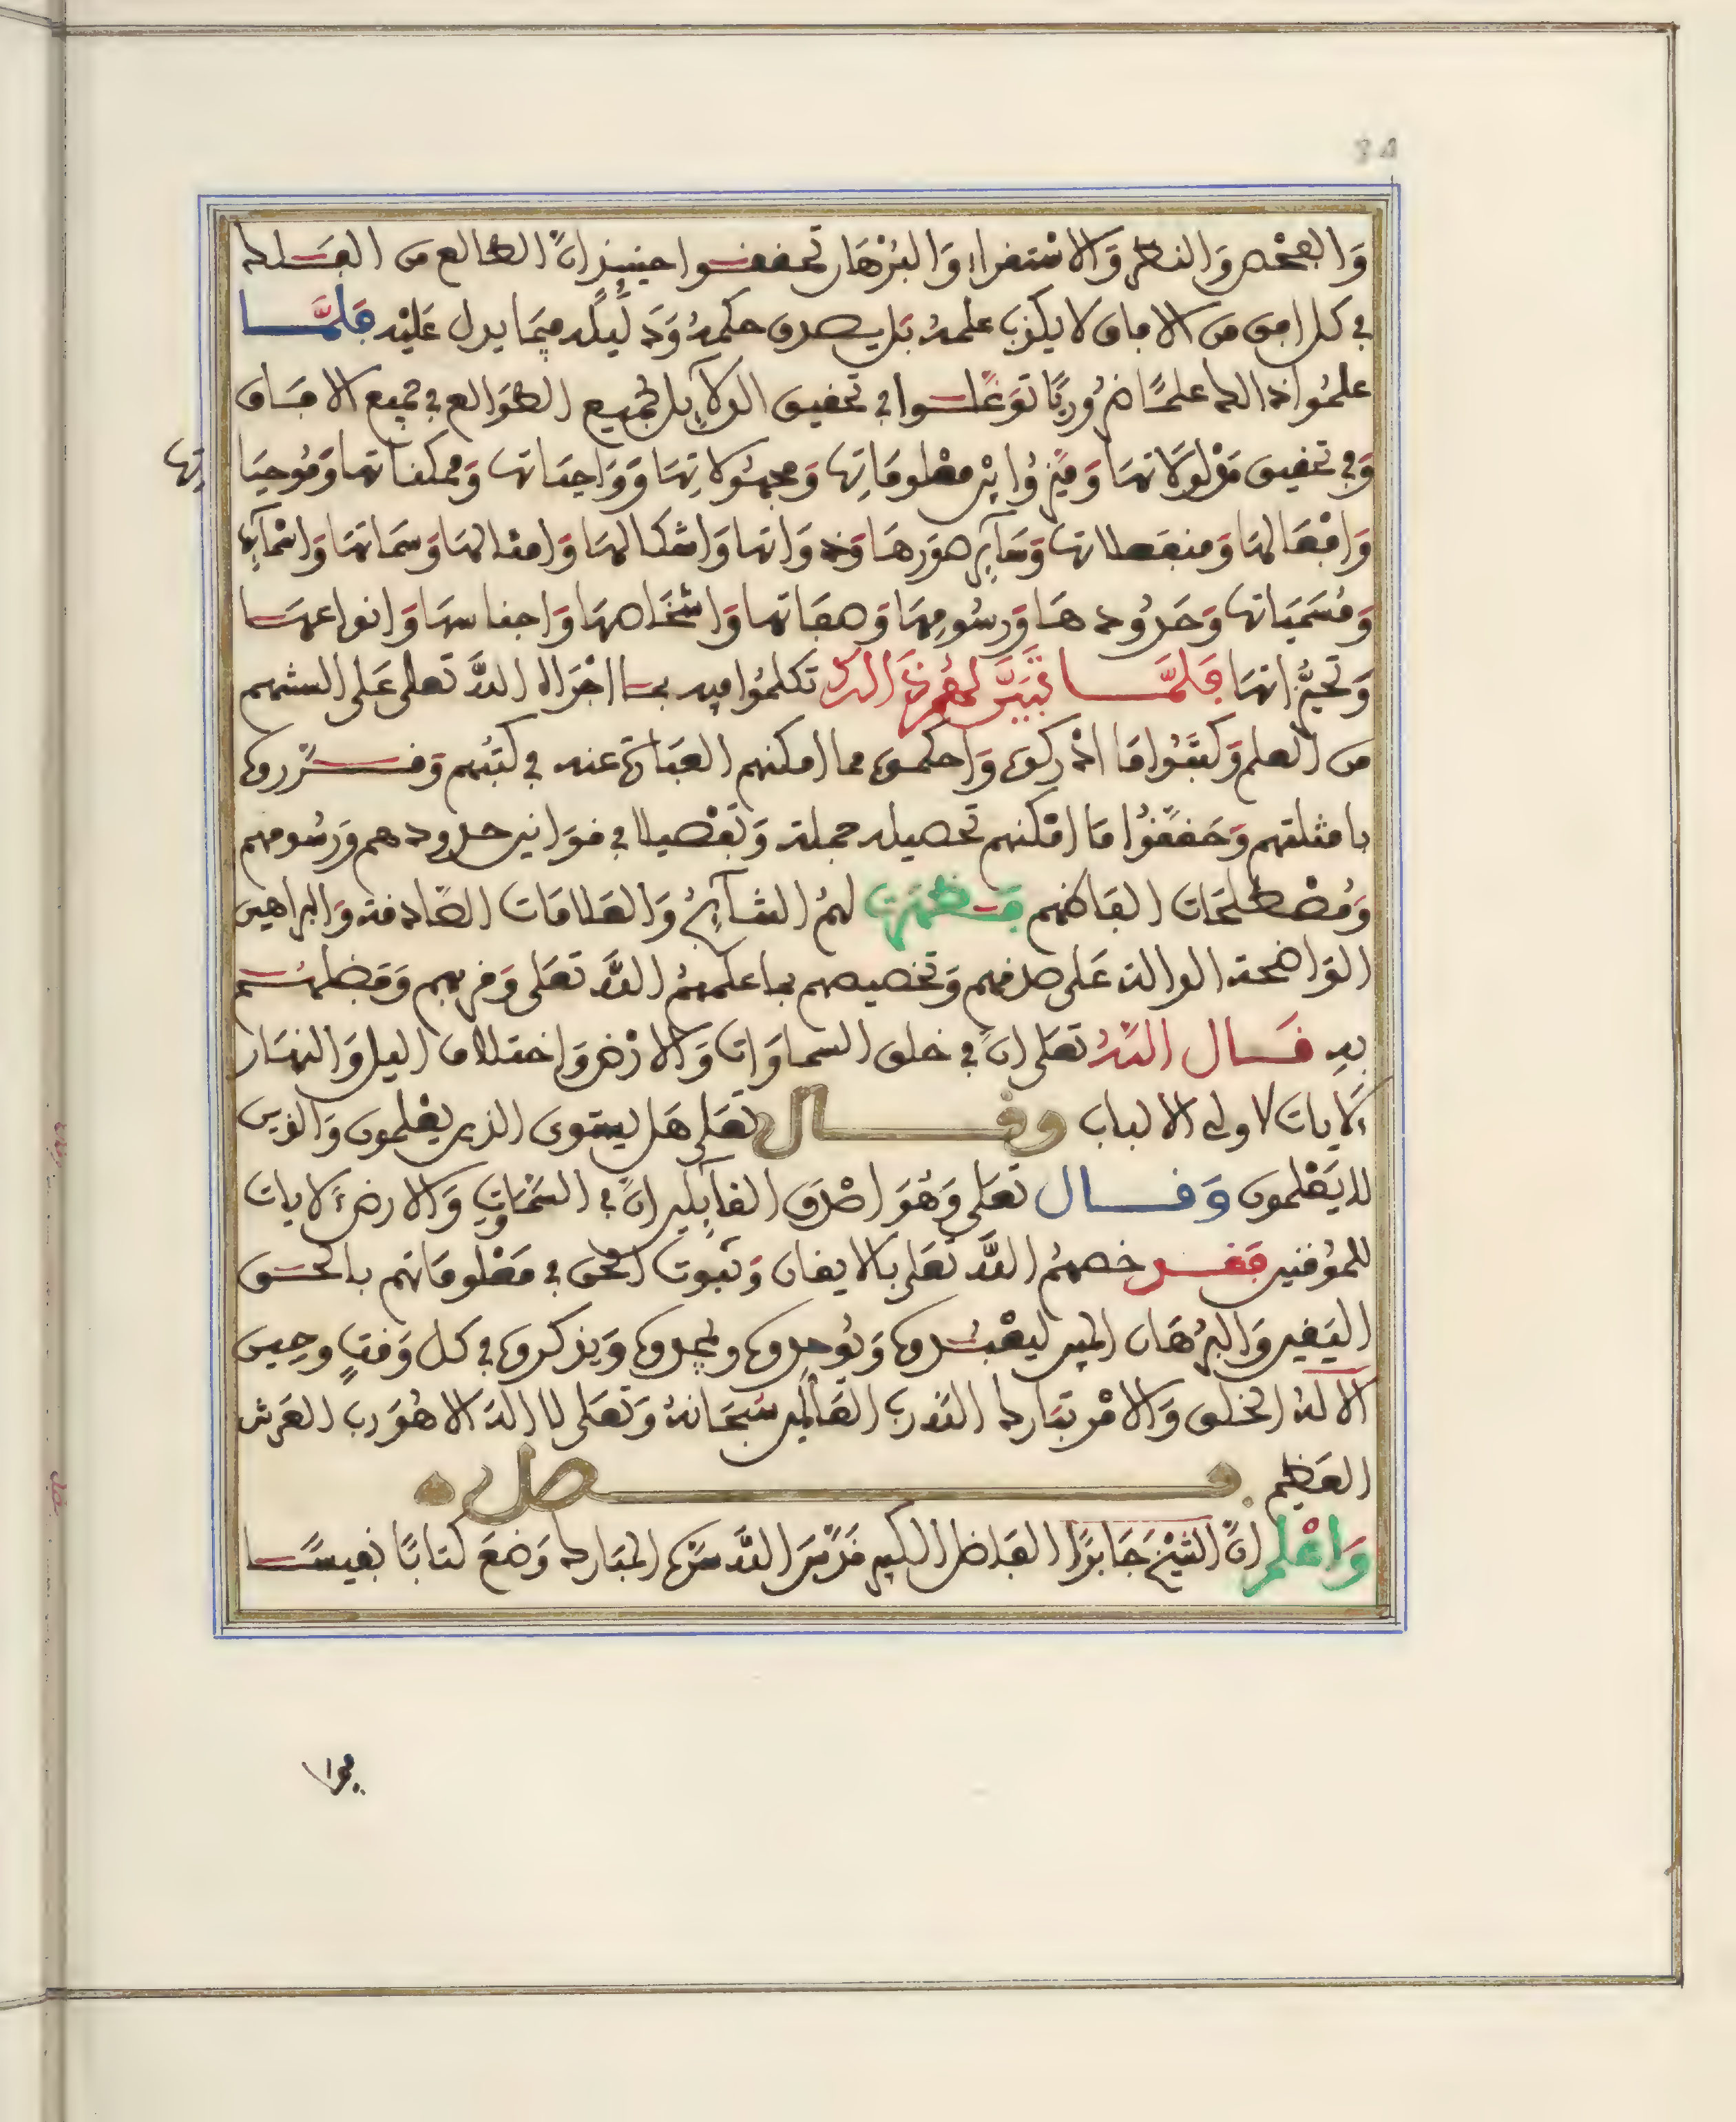 والفحص والنظر والاستقراء والبرهان تحققوا حينئذ ان الطالع من الفلك
في كل افق من الافاق لا يكذب علمه بل يصدق حكمه ودليله فيما يدل عليه فلما
علموا ذالك علمًا ضروريًا توغلوا في تحقيق الدلايل لجميع الطوالع في جميع الافاق
وفي تحقيق مدلولاتها وميزوا بين معلوماتها ومجهولاتها وواجباتها وممكناتها وموجبا
تها
وافعالها ومنفعلاتها وسآير صورها وذواتها واشكالها وامثالها وسماتها واسمآيها
ومسمياتها وحدودها ورسومها وصفاتها واشخاصها واجناسها وانواعها
وتحيزاتها فلما تبين لهم ذالك تكلموا فيه بما اجراه الله تعلى على السنتهم
من العلم وكتبوا ما ادركوه واحكموه مما امكنهم العبارة عنه في كتبهم وقرروه
بامثلتهم وحققوا ما امكنهم تحصيله جملة وتفصيلا في قوانين حدودهم ورسومهم
ومصطلحات الفاظهم فظهرت لهم النتآيج والعلامات الصادقة والبراهين
الواضحة الدالة على صدقهم وتخصيصهم بما علمهم الله تعلى وقربهم وفضلهم
به قال الله تعلى ان في خلق السماوات والارض واختلاف اليل والنهار
لايات لاولي الالباب وقال تعلى هل يستوى الذين يعلمون والذين
لا يعلمون وقال تعلى وهو اصدق القآيلين ان في السماوات والارض لايات
للموقنين فقد خصهم الله تعلى بالايقان وثبوت الحق في معلوماتهم بالحق
اليقين والبرهان المبين ليعبدوه ويوحدوه ويمجدوه ويذكروه في كل وقت وحين
الا له الخلق والامر تبارك الله رب العالمين سبحانه وتعلى لا اله الا هو رب العرش
العظيم فصل
واعلم ان الشيخ جابرًا الفاضل الكبير قدس الله سره المبارك وضع كتابًا نفيسًا